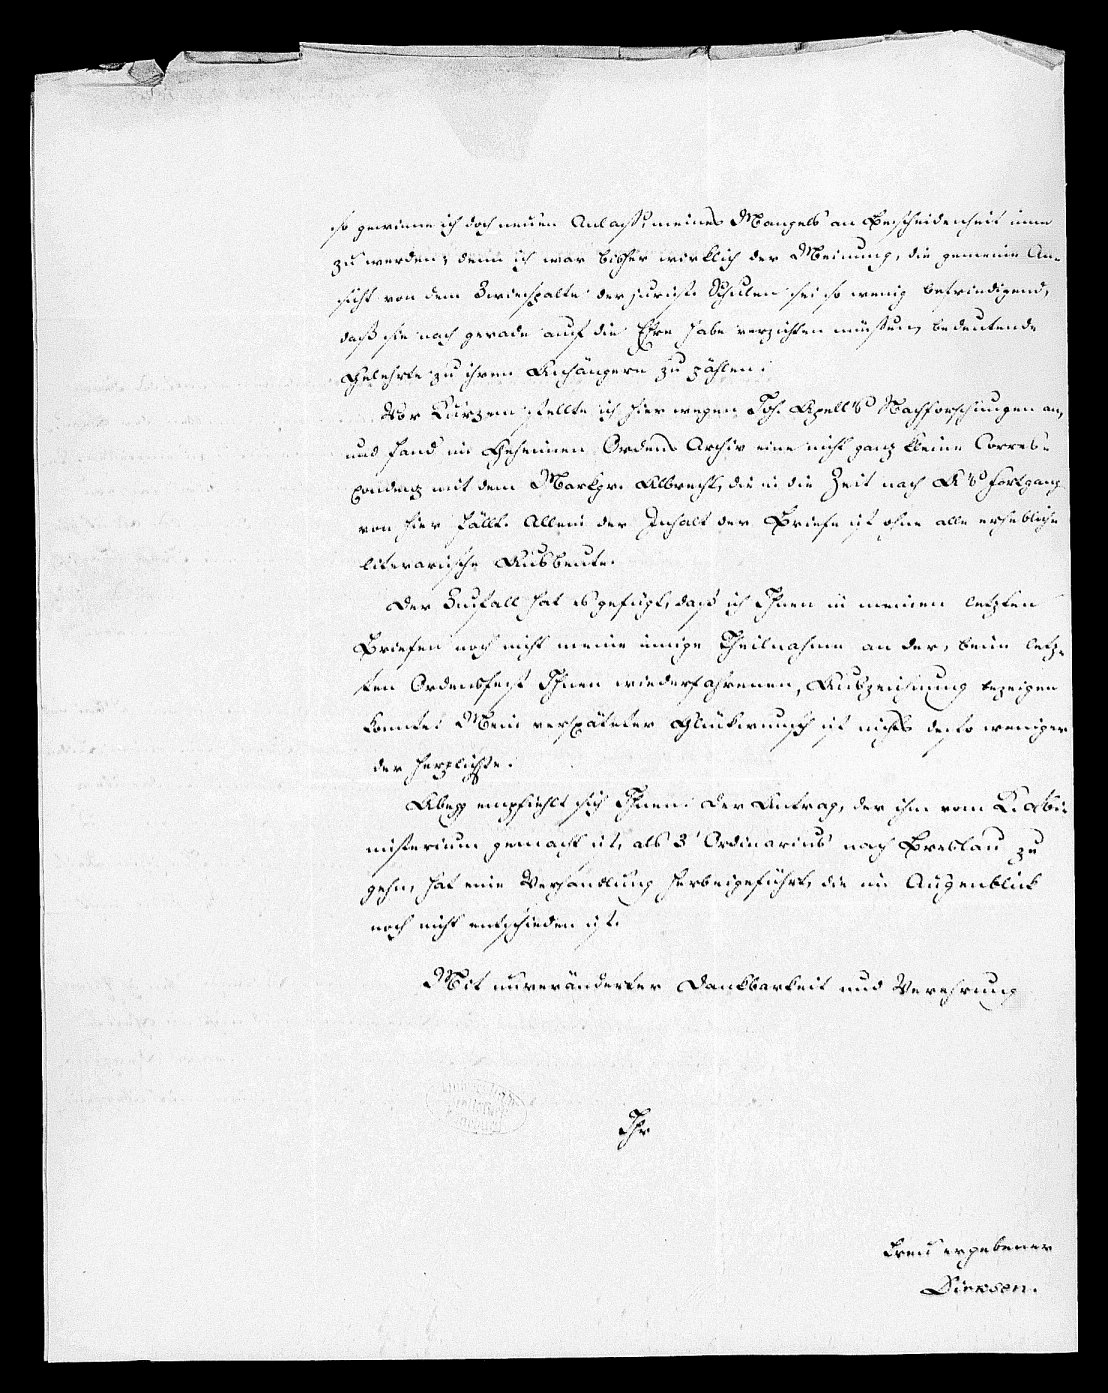 so gewinne ich doch neuen Anlaß, meines Mangels an Bescheidenheit inne
zu werden; denn ich war bisher wirklich der Meinung, die gemeine An-
sicht von dem Zwiespalte der jurist. Schulen sei so wenig befriedigend,
daß sie nach gerade auf die Ehre habe verzichten müssen, bedeutende
Gelehrte zu ihren Anhängern zu zählen.
Vor Kurzem stellte ich hier wegen Joh. Apell's Nachforschungen an,
und fand im Geheimen Ordens Archiv eine nicht ganz kleine Corres-
pondenz mit dem Markgr. Albrecht, die in die Zeit nach A's Fortgang
von hier fällt. Allein der Inhalt der Briefe ist ohne alle erhebliche
literarische Ausbeute.
Der Zufall hat es gefügt, daß ich Ihnen in meinen letzten
Briefen noch nicht meine innige Theilnahme an der, beim letz-
ten Ordensfest Ihnen wiederfahrenen, Auszeichnung bezeigen
konnte. Mein verspäteter Glückwunsch ist nichts desto weniger
der herzlichste.
Abegg empfiehlt sich Ihnen. Der Antrag, der ihm vom K. Mi-
nisterium gemacht ist, als 3' Ordinarius nach Breslau zu
gehn, hat eine Verhandlung herbeigeführt, die im Augenblick
noch nicht entschieden ist.
Mit unveränderter Dankbarkeit und Verehrung
Ihr
treu ergebener
Dirksen.